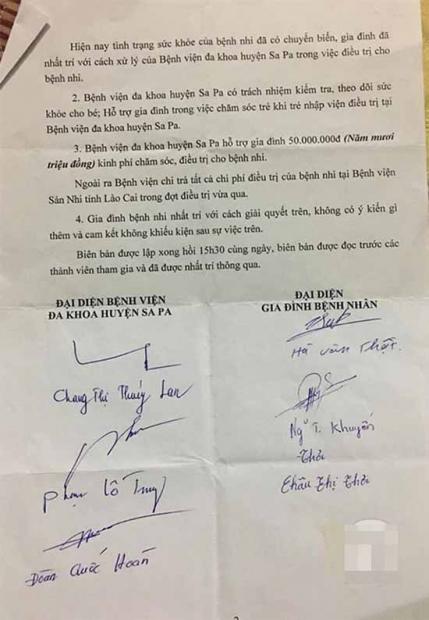 Hiện nay tình trạng sức khỏe của bệnh nhi đã có chuyển biến, gia đình đã
nhất trí với cách xử lý của Bệnh viện đa khoa huyện Sa Pa trong việc điều trị cho
bệnh nhi.
2. Bệnh viện đa khoa huyện Sa Pa có trách nhiệm kiểm tra, theo dõi sức
khỏe cho bé; Hỗ trợ gia đình trong việc chăm sóc trẻ khi trẻ nhập viện điều tại
Bệnh viện đa khoa huyện Sa Pa.
3. Bệnh viện đa khoa huyện Sa Pa hỗ trợ gia đình 50.000.000đ (Năm mươi
triệu đồng) kinh phí chăm sóc, điều trị cho bệnh nhi.
Ngoài ra Bệnh viện chi trả tất cả chi phí điều trị của bệnh nhi tại Bệnh viện
Sản Nhi tỉnh Lào Cai trong đợt điều trị vừa qua.
4. Gia đình bệnh nhi nhất trí với cách giải quyết trên, không có ý kiến gì
thêm và cam kết không khiếu kiện sau sự việc trên.
Biên bản được lập xong hồi 15h30 cùng ngày, biên bản được đọc trước các
thành viên tham gia và đã được nhất trí thông qua.
ĐẠI DIỆN BỆNH VIỆN
ĐA KHOA HUYỆN SA PA
ĐẠI DIỆN
GIA ĐÌNH BỆNH NHÂN
Hà Văn Thật
Chang Thị Thúy Lan
Ngũ T. Khuyến
Thơi
Châu Thị Thơi
Phạm Lố
Đoàn Quốc Hoàn